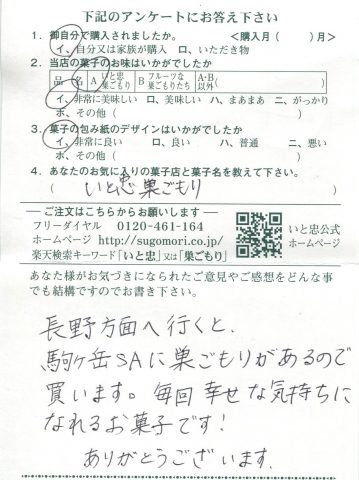 下記のアンケートにお答え下さい
1. 御自分で購入されましたか。 <購入月( )月>
イ、自分又は家族が購入 ロ、いただき物
2. 当店の菓子のお味はいかがでしたか
品名 A いと忠巣ごもり B フルーツな巣ごもりたち A・B以外( )
イ、非常に美味しい ロ、美味しい ハ、まあまあ ニ、がっかり
ホ、その他( )
3. 菓子の包み紙のデザインはいかがでしたか
イ、非常に良い ロ、良い ハ、普通 ニ、悪い
ホ、その他( )
4. あなたのお気に入りの菓子店と菓子名を教えて下さい。
( いと忠 巣ごもり )
― ご注文はこちらからお願いします ―
フリーダイヤル 0120-461-164
ホームページ http://sugomori.co.jp/
楽天検索キーワード「いと忠」又は「巣ごもり」
いと忠公式
ホームページ
あなた様がお気づきになられたご意見やご感想をどんな事
でも結構ですのでお書き下さい。
長野方面へ行くと、
駒ヶ岳SAに巣ごもりがあるので
買います。毎回幸せな気持ちに
なれるお菓子です!
ありがとうございます。